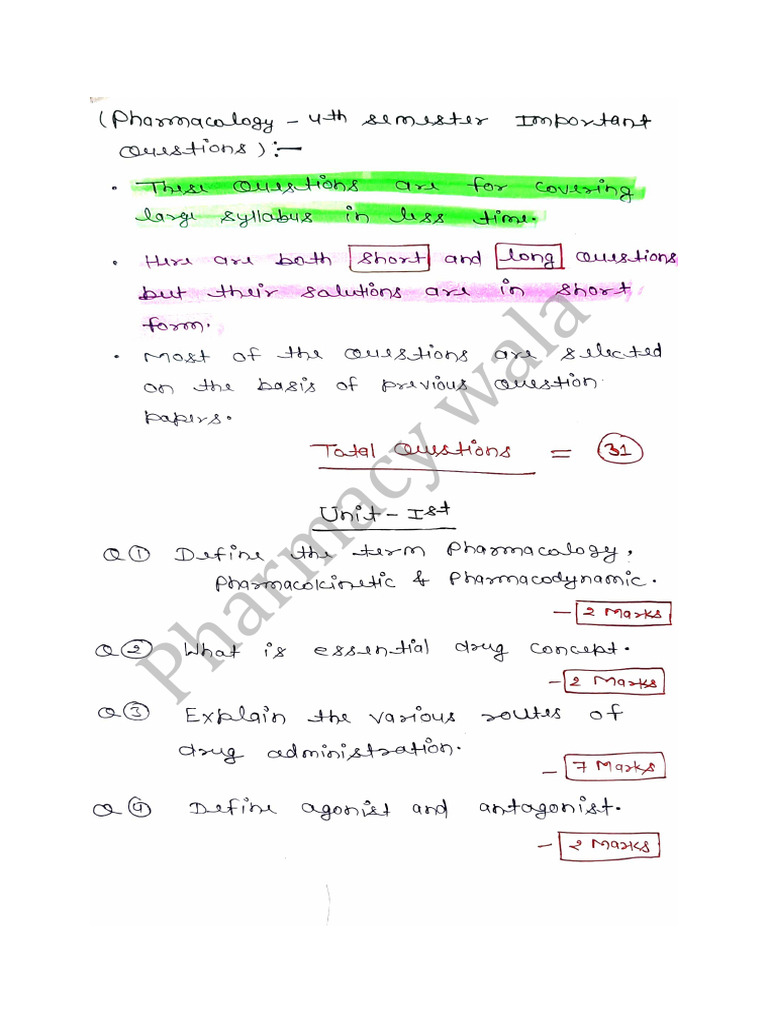 (Pharmacology - 4th semester Important
Questions):-
• These Questions are for covering
large syllabus in less time.
• Here are both short and long Questions
but their solutions are in short
form.
• Most of the Questions are selected
on the basis of previous Question
papers.
Total Questions = 31
Unit - Ist
Q ① Define the term Pharmacology,
Pharmacokinetic & Pharmacodynamic.
- 2 Marks
Q ② What is essential drug concept.
- 2 Marks
Q ③ Explain the various routes of
drug administration.
- 7 Marks
Q ④ Define agonist and antagonist.
- 2 Marks
Pharmacy wala